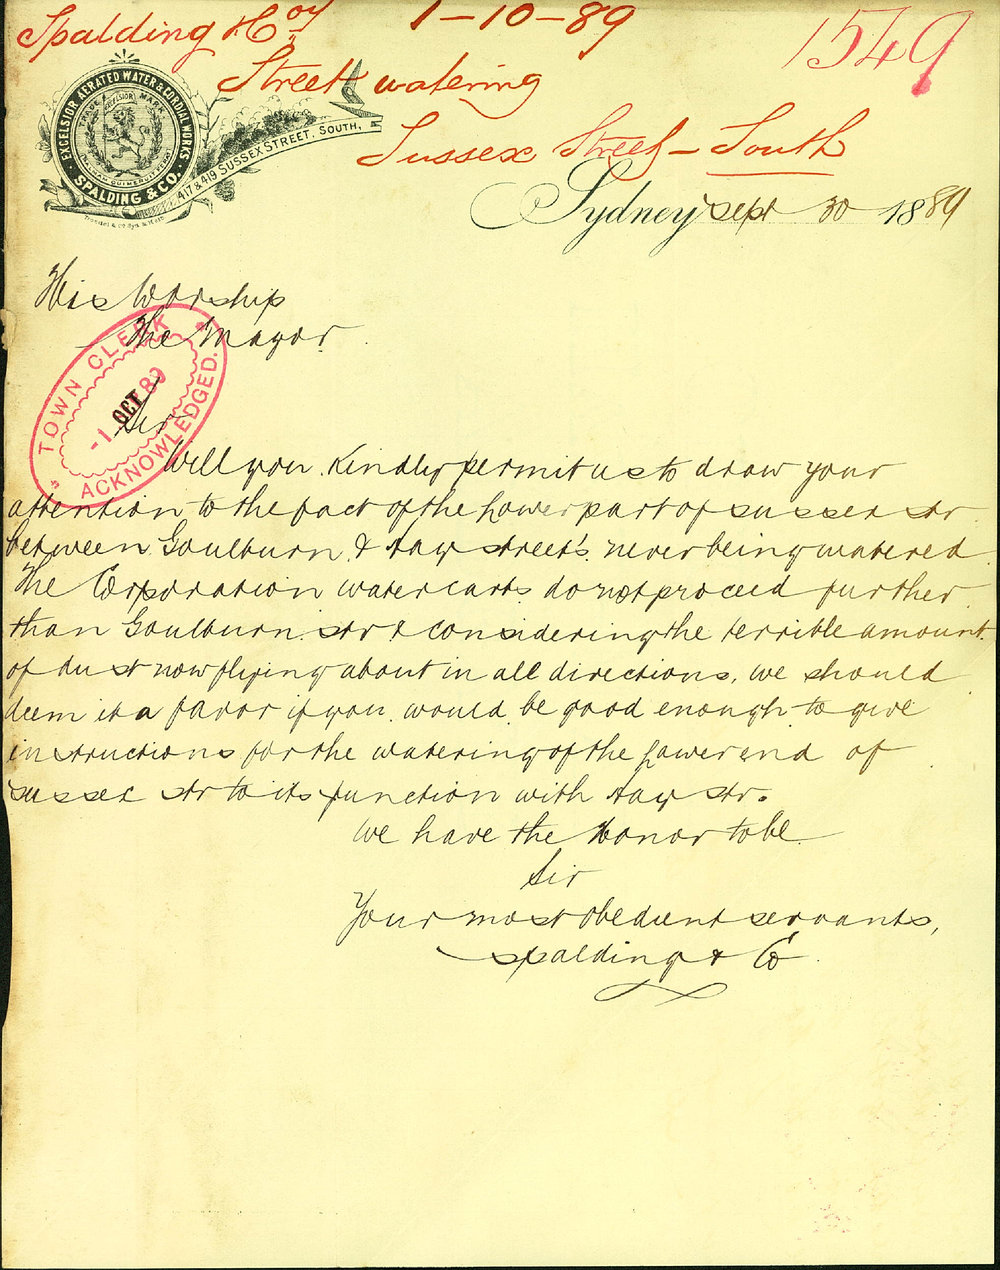 Spalding & Coy 1-10-89 1549
Street watering
Sussex Street - South
EXCELSIOR AERATED WATER & CORDIAL WORKS
TRADE MARK
EXCELSIOR
SPALDING & CO.
417 & 419 SUSSEX STREET, SOUTH,
Sydney Sept 30 1889
His Worship
The Mayor
TOWN CLERK
-1 OCT 89
ACKNOWLEDGED.
Sir
Will you kindly permit us to draw your
attention to the fact of the lower part of Sussex str
between Goulburn & Hay street's never being watered
The Corporation water carts do not proceed further
than Goulburn str & considering the terrible amount
of dust now flying about in all directions, we should
deem it a favor if you would be good enough to give
instructions for the watering of the lower end of
Sussex str to its junction with Hay str.
We have the honor to be
Sir
Your most obedient servants,
Spalding & Co